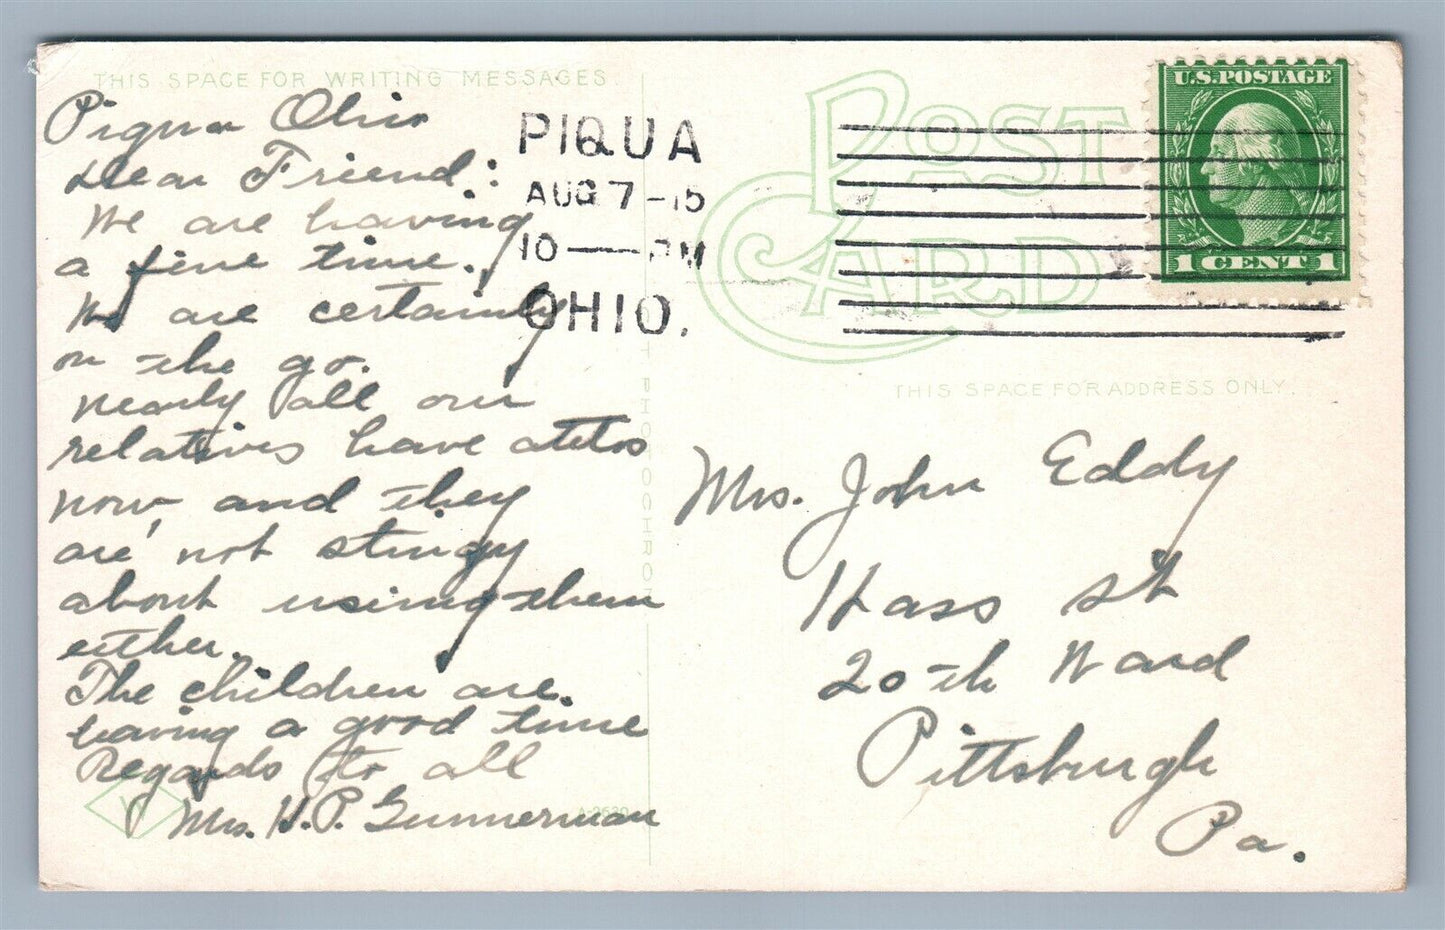 THIS SPACE FOR WRITING MESSAGES
Piqua Ohio
Dear Friend:
We are having
a fine time.
We are certainly
on the go.
nearly all our
relatives have autos
now, and they
are not stingy
about using them
either.
The children are
having a good time
Regards to all
Mrs. H. P. Gunnerman
PIQUA
AUG 7 - 15
10 — PM
OHIO.
POST
CARD
U.S. POSTAGE
1 CENT 1
THIS SPACE FOR ADDRESS ONLY.
Mrs. John Eddy
Hass St
20th Ward
Pittsburgh
Pa.